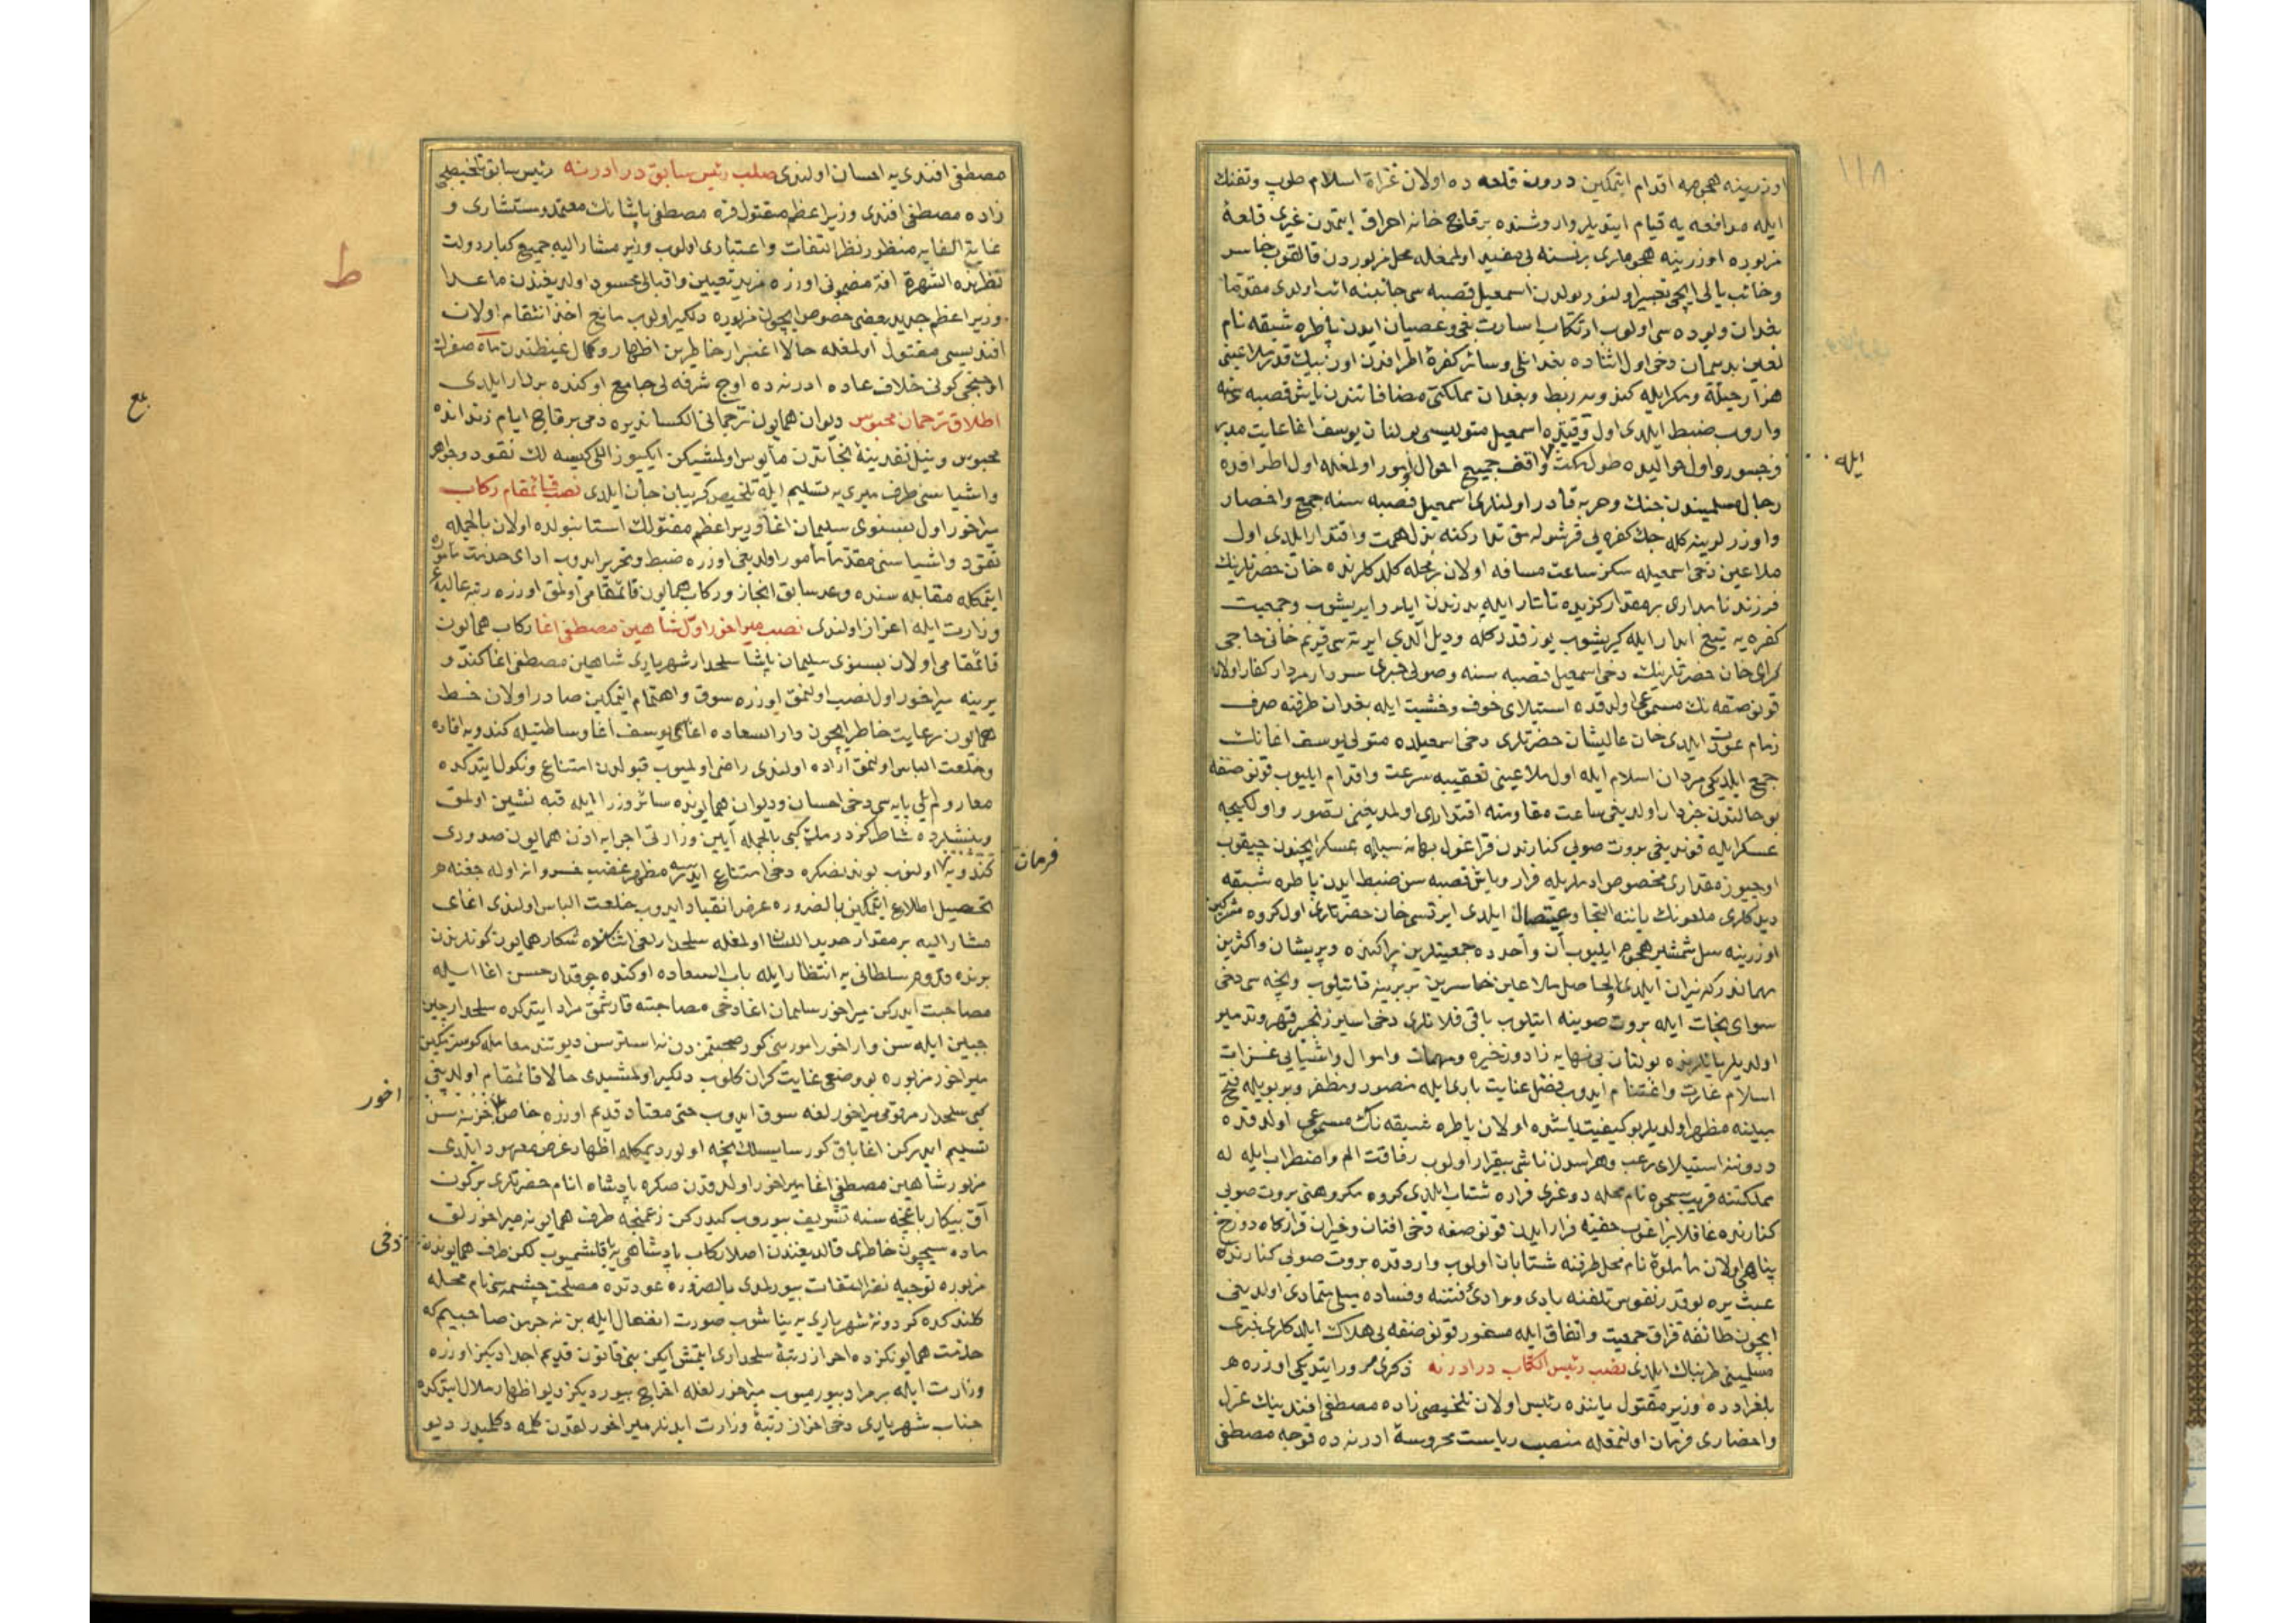 ١١٨
اوزرينه هجومه اقدام ايتمكين درون قلعه ده اولان غزاة اسلام طوب وتفنك
ايله مدافعه يه قيام ايتديلر واروشنده برقاچ خانه احراق ايتمدن غيرى قلعهٔ
مزبوره اوزرينه هجوملرى برنسنه يى مفيد اولمغله محل مزبوردن قالقوب خاسر
وخائب يالى ايچى تعبير اولنور يولدن اسمعيل قصبه سى جانبنه ائب اولدى مقدما
بغدان ويوده سى اولوب ارتكاب اسارت بغى وعصيان ايدن پاطره شيقه نام
لعين بدسمان دخى اول اثناده بغدانلى وسائر كفرهٔ اطرافدن اون بيك قدر ملاعينى
هزار حيله ومكر ايله كندويه ربط وبغدان مملكتى مضافاتندن يايش قصبه سنه
واروب ضبط ايلدى اول وقتده اسمعيل متوليسى بولنان يوسف اغا غايت مدبر
وجسور واول حواليده طول مكث واقف جميع احوال امور اولمغله اول اطرافده
ايله
رجال مسلميندن جنك وحربه قادر اولنلرى اسمعيل قصبه سنه جمع واحضار
واوزرلرينه كله جك كفره يى قرشولامق تداركنه بذل همت واقتدار ايلدى اول
ملاعين دخى اسمعيله سكز ساعت مسافه اولان بر محله كلدكلرنده خان حضرتلرينك
فرزند نامدارى بر مقدار كزيده تاتار ايله يد زندن ايلرو ايريشوب وجمعيت
كفره يه تيغ ابدار ايله كيريشوب يوز قدر كله وديل الدى ايرته سى قريم خانى حاجى
كراى خان حضرتلرينك دخى اسمعيل قصبه سنه وصولى خبرى سردار مردار كفار اولان
قونوصقه نك مسموعى اولدقده استيلاى خوف وخشيت ايله بغدان طرفنه صرف
زمام عودت ايلدى خان عاليشان حضرتلرى دخى اسمعيلده متولى يوسف اغانك
جمع ايلديكى مردان اسلام ايله اول ملاعينى تعقيبه سرعت واقدام ايليوب قونوصقه
بو حالتدن خبردار اولديغى ساعت مقاومته اقتدارى اولمديغنى تصور واول كيجه
عسكر ايله قونديغى بروت صويى كنارندن قراغول بهانه سيله عسكر ايچندن چيقوب
اوچيوز مقدارى مخصوص ادملريله فرار ويايش قصبه سن ضبط ايدن پاطره شيقه
ديدكلرى ملعونك ياننه التجا واتصال ايلدى ايرتسى خان حضرتلرى اول كروه مشركين
اوزرينه سل شمشير هجوم ايليوب آن واحدده جمعيتلرين پراكنده وپريشان واكثرين
مهمان دركه نيران ايلدى الحاصل ملاعين خاسرين بربرينه قاتيلوب ونيچه سى دخى
سواى نجات ايله بروت صوينه اتيلوب باقى قلانلرى دخى اسير زنجير قهر وتدمير
اولديلر يانلرنده بولنان بى نهايه زاد وذخيره ومهمات واموال واشيايى غزات
اسلام غارت واغتنام ايدوب فضل عنايت بارى ايله منصور ومظفر وبويله فتح
مبينه مظهر اولديلر بو كيفيت ياشده اولان پاطره شيقه نك مسموعى اولدقده
دروننه استيلاى رعب وهراسدن ناشى بيقرار اولوب رفاقت الم واضطراب ايله له
مملكتنه قريب سچوه نام محله دوغرى فراره شتاب ايلدى كروه مكروهنى بروت صويى
كنارنده غافلا براغوب خفيه فرار ايدن قونوصقه دخى افتان وخيزان قراركاه دوزخ
پناهى اولان نام محل طرفنه شتابان اولوب واردقده بروت صويى كنارنده
عبث يره بو قدر نفوس تلفنه بادى ووادئ فتنه وفساده سيلى متمادى اولديغى
ايچون طائفه قزاق جمعيت واتفاق ايله مسفور قونوصقه يى هلاك ايلدكلرى خبرى
مسلمينى طربناك ايلدى نصب رئيس الكتاب در ادرنه ذكرى مرور ايتديكى اوزره هر
بلغرادده وزير مقتول ياننده رئيس اولان تلخيصى زاده مصطفى افندينك عزل
واحضارى فرمان اولنمغله منصب رياست محروسهٔ ادرنه ده قوجه مصطفى
مصطفى افندى يه احسان اولندى صلب رئيس سابق در ادرنه رئيس سابق تلخيصى
زاده مصطفى افندى وزير اعظم مقتول قره مصطفى پاشانك معتمد ومستشارى و
غاية الغايه منظور نظر التفات واعتبارى اولوب وزير مشار اليه جميع كبار دولت
نظرنده الشهرة افة مضمونى اوزره مزيد تعيين واقبالى محسود اولديغندن ماعدا
ط
وزير اعظم جديد بعضى خصوص ايچون مزبوره دلكير اولوب مانع اخذ انتقام اولان
افنديسى مقتول اولمغله حالا اغبرار خاطرين اظهار وكمال غيظندن ماه صفرك
اوچنجى كونى خلاف عاده ادرنه ده اوچ شرفه لى جامع اوكنده بردار ايلدى
اطلاق ترجمان محبوس ديوان همايون ترجمانى الكساندره ذمى بر قاچ ايام زندانده
محبوس ونيل نقدينهٔ نجاتدن مأيوس اولمشيكن ايكيوز اللى كيسه لك نقود وجواهر
واشياسنى طرف ميرى يه تسليم ايله تلخيص كريبان جان ايلدى نصب قائمقام ركاب
ميراخور اول بسنوى سليمان اغا وزير اعظم مقتولك استانبولده اولان بالجمله
نقود واشياسنى مقدما مأمور اولديغى اوزره ضبط وتحرير ايدوب اداى خدمت مأموره
ايتمكله مقابله سنده وعد سابق انجاز وركاب همايون قائمقامى اولمق اوزره رتبه عاليهٔ
وزارت ايله اعزاز اولندى نصب ميراخور اول شاهين مصطفى اغا ركاب همايون
قائمقامى اولان بسنوى سليمان پاشا سلحدار شهريارى شاهين مصطفى اغا كندو
يرينه ميراخور اول نصب اولنمق اوزره سوق واهتمام ايتمكين صادر اولان خط
همايون رعايت خاطر ايچون دار السعاده اغاسى يوسف اغا وساطتيله كندويه افاده
وخلعت الباس اولنمق اراده اولندى راضى اولميوب قبولدن امتناع ونكول ايتدكده
معا روم ايلى پايه سى دخى احسان وديوان همايونده سائر وزرا ايله قبه نشين اولمق
وبينشلرده شاطر كزدرمك كبى بالجمله آيين وزارتى اجرايه اذن همايون صدورى
كندويه اولنوب بوندنصكره دخى امتناع ايدرسه مظهر غضب خسروانه اوله جغنه هر
فرمان
تحصيل اطلاع ايتمكين بالضروره عرض انقياد ايدوب خلعت الباس اولندى اغاى
مشار اليه بر مقدار حديد اللسان اولمغله سلحدارلغى اثناده شكار همايون كونلرندن
برنده قدوم سلطانى يه انتظار ايله باب السعاده اوكنده چوقدار حسن اغا ايله
مصاحبت ايدركن ميراخور سليمان اغا دخى مصاحبته قارشمق مراد ايتدكده سلحدار چين
جبين ايله سن وار اخور امورينى كور صحبتمزدن نه استرسن ديو تند معامله كوسترمكين
ميراخور مزبوره بو وضعى غايت كران كلوب دلكير اولمشيدى حالا قائمقام اولديغى
كبى سلحدار مرقومى ميراخورلغه سوق ايدوب حتى معتاد قديم اوزره خاص خزينه سن
اخور
تسليم ايدركن اغا باق كور سايسلك نيجه اولور ديمكله اظهار غرض معهود ايلدى
مزبور شاهين مصطفى اغا ميراخور اولدقدن صكره پادشاه انام حضرتلرى بركون
آق بيكار باغچه سنه تشريف بيوروب كيدركن زعمنجه طرف همايونه ميراخورلق
ماده سيچون خاطرى قالديغندن اصلا ركاب پادشاهى يه ياقلشميوب كلن طرف همايوندن
دخى
مزبوره توجيه نظر التفات بيورلمدى بالضروره عودتده مصلحت چشمه سى نام محله
كلندكده كردونهٔ شهريارى يه يناشوب صورت انفعال ايله بن نه جرمن صاحبيم كه
خدمت همايونكزده احراز رتبهٔ سلحدارى ايتمش ايكن بنى قانون قديم اجداديكز اوزره
وزارت ايله بر مراد بيورميوب ميراخورلغله اخراج بيورديكز ديو اظهار ملال ايتدكده
جناب شهريارى دخى احزان رتبهٔ وزارت ايدنلر ميراخورلقدن كله دكلميدر ديو